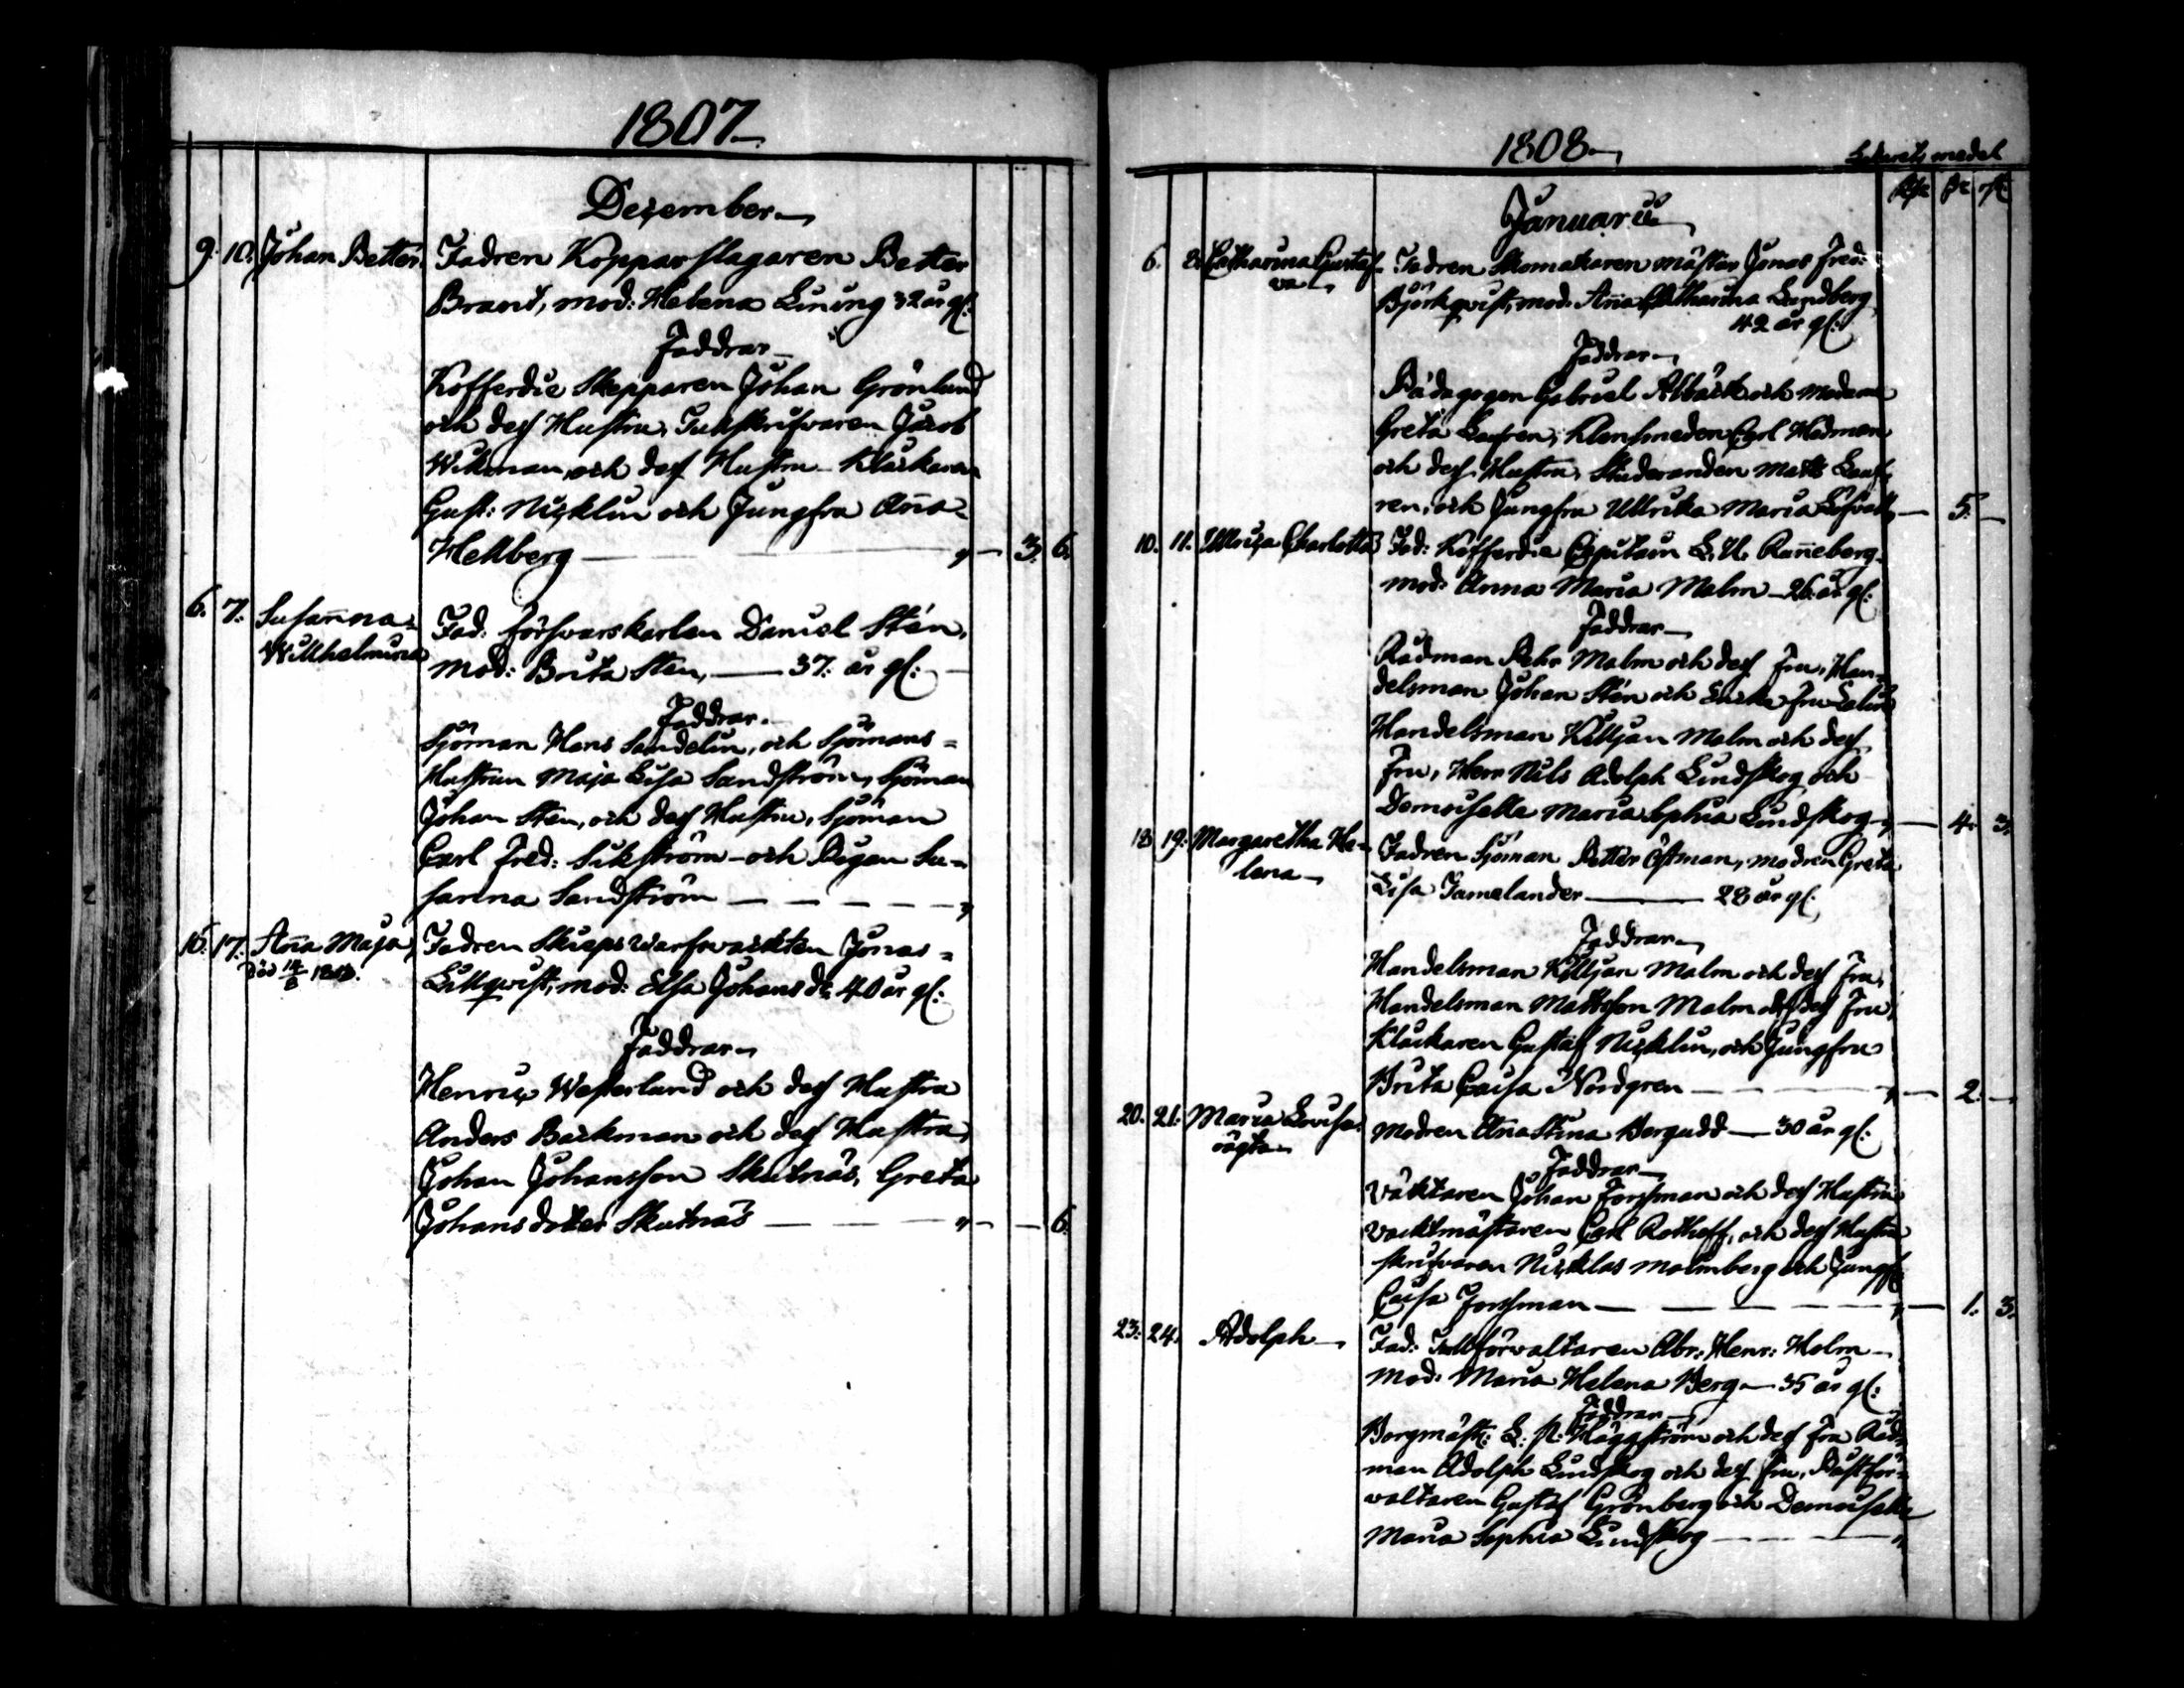 1807
December
9. 10. Johan Petter. Fadren Kopparslagaren Petter
Brant, mod: Helena Lining 32 år gl:
Faddrar
Kofferdie Skepparen Johan Grönlund
och dess Hustru, Tullskrifvaren Jacob
Wikman, och dess Hustru Klåckaren
Gust: Nicklin och Jungfru Aña
Hellberg — 3. 6.
6. 7. Susañna Fad: försvarskarlen Daniel Stén,
Wilhelmina mod: Brita Sten, — 37. år gl:
Faddrar.
Sjöman Hans Sandelin, och Sjömans=
Hustrun Maja Lisa Sandström, Sjöman
Johan Sten, och dess Hustru, Sjöman
Carl Fred: Sikström och Pigan Su=
sanna Sandström
16. 17. Aña Maja, Fadren Skieps
död 14/8 Lillqvist, mod: Elsa Johans dr. 40 år gl:
Faddrar
Henric Westerlund och dess Hustru
Anders Backman och dess Hustru,
Johan Johansson Skutnäs, Greta
Johansdotter Skutnäs — 6.
1808
medel
Januarii
6. 8. Catharina Gusta= Fadren Skomakaren mästar Jonas Fred:
va Björkqvist, mod: Aña Catharina Lundberg
42 år gl:
Faddrar
Pädagogen Gabriel Alback och Madame
Greta, Klensmeden Carl Hedman
och dess Hustru, Studeranden Matts
ren, och Jungfru Ullrika Maria — 5. —
10. 11. Ulrica Charlotta Fad: Kofferdie Capitain L. U. Rañeberg
mod: Anna Maria Malm 26 år gl:
Faddrar
Rådman Pehr Malm och dess Fru, Han=
delsman Johan Stén och Encke fru
Handelsman Killjan Malm och dess
Fru, Herr Nils Adolph Lindskog och
Demoiselle Maria Sophia Lindskog — 4. 3.
18 19. Margaretha He= Fadren Sjöman Petter Östman, modren Greta
lena Lisa Jamelander — 28 år gl:
Faddrar
Handelsman Killjan Malm och dess Fru,
Handelsman Mattsson Malm och dess Fru,
Klåckaren Gustaf Nicklin, och Jungfru
Brita Caisa Nordgren — 2. —
20. 21. Maria Lovisa Modren Aña Stina Bergudd — 30 år gl:
oägta
Faddrar
Väcktaren Johan Forssman och dess Hustru
vacktmästaren Carl Rothoff, och dess Hustru
skrifvaren Nicklas Malmberg och Jungf:
Caisa Forssman — 1. 3.
23. 24. Adolph Fad: Tullförvaltaren Abr: Henr: Holm
mod: Maria Helena Berg — 35 år gl:
Faddrar
Borgmäst: L. P. Häggström och dess Fru Råd=
man Adolph Lindskog och dess Fru, Påstför=
valtaren Gustaf Grönberg och Demoiselle
Maria Sophia Lindskog